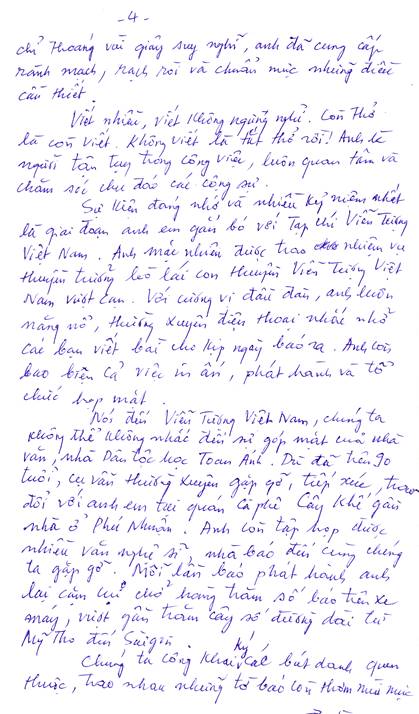 - 4 -
chỉ thoáng vài giây suy nghĩ, anh đã cung cấp
rành mạch, rạch ròi và chuẩn mực những điều
cần thiết.
Viết nhiều, viết không ngừng nghỉ. Còn thở
là còn viết. Không viết là tắt thở rồi! Anh là
người tận tụy trong công việc, luôn quan tâm và
chăm sóc chu đáo các cộng sự.
Sự kiện đáng nhớ và nhiều kỷ niệm nhất
là giai đoạn anh em gắn bó với Tạp chí Viễn Tượng
Việt Nam. Anh mặc nhiên được trao nhiệm vụ
thuyền trưởng lèo lái con thuyền Viễn Tượng Việt
Nam vượt cạn. Với cương vị đầu đàn, anh luôn
năng nổ, thường xuyên điện thoại nhắc nhở
các bạn viết bài cho kịp ngày báo ra. Anh còn
bao biện cả việc in ấn, phát hành và tổ
chức họp mặt.
Nói đến Viễn Tượng Việt Nam, chúng ta
không thể không nhắc đến sự góp mặt của nhà
văn, nhà Dân tộc học Toan Ánh. Dù đã trên 90
tuổi, cụ vẫn thường xuyên gặp gỡ, tiếp xúc, trao
đổi với anh em tại quán cà phê Cây Khế gần
nhà ở Phú Nhuận. Anh còn tập họp được
nhiều văn nghệ sĩ, nhà báo đến cùng chúng
ta gặp gỡ. Mỗi lần báo phát hành anh
lại cặm cụi chở hàng trăm số báo trên xe
máy, vượt gần trăm cây số đường dài từ
Mỹ Tho đến Saigon.
Chúng ta công khai ký các bút danh quen
thuộc, trao nhau những tờ báo còn thơm mùi mực